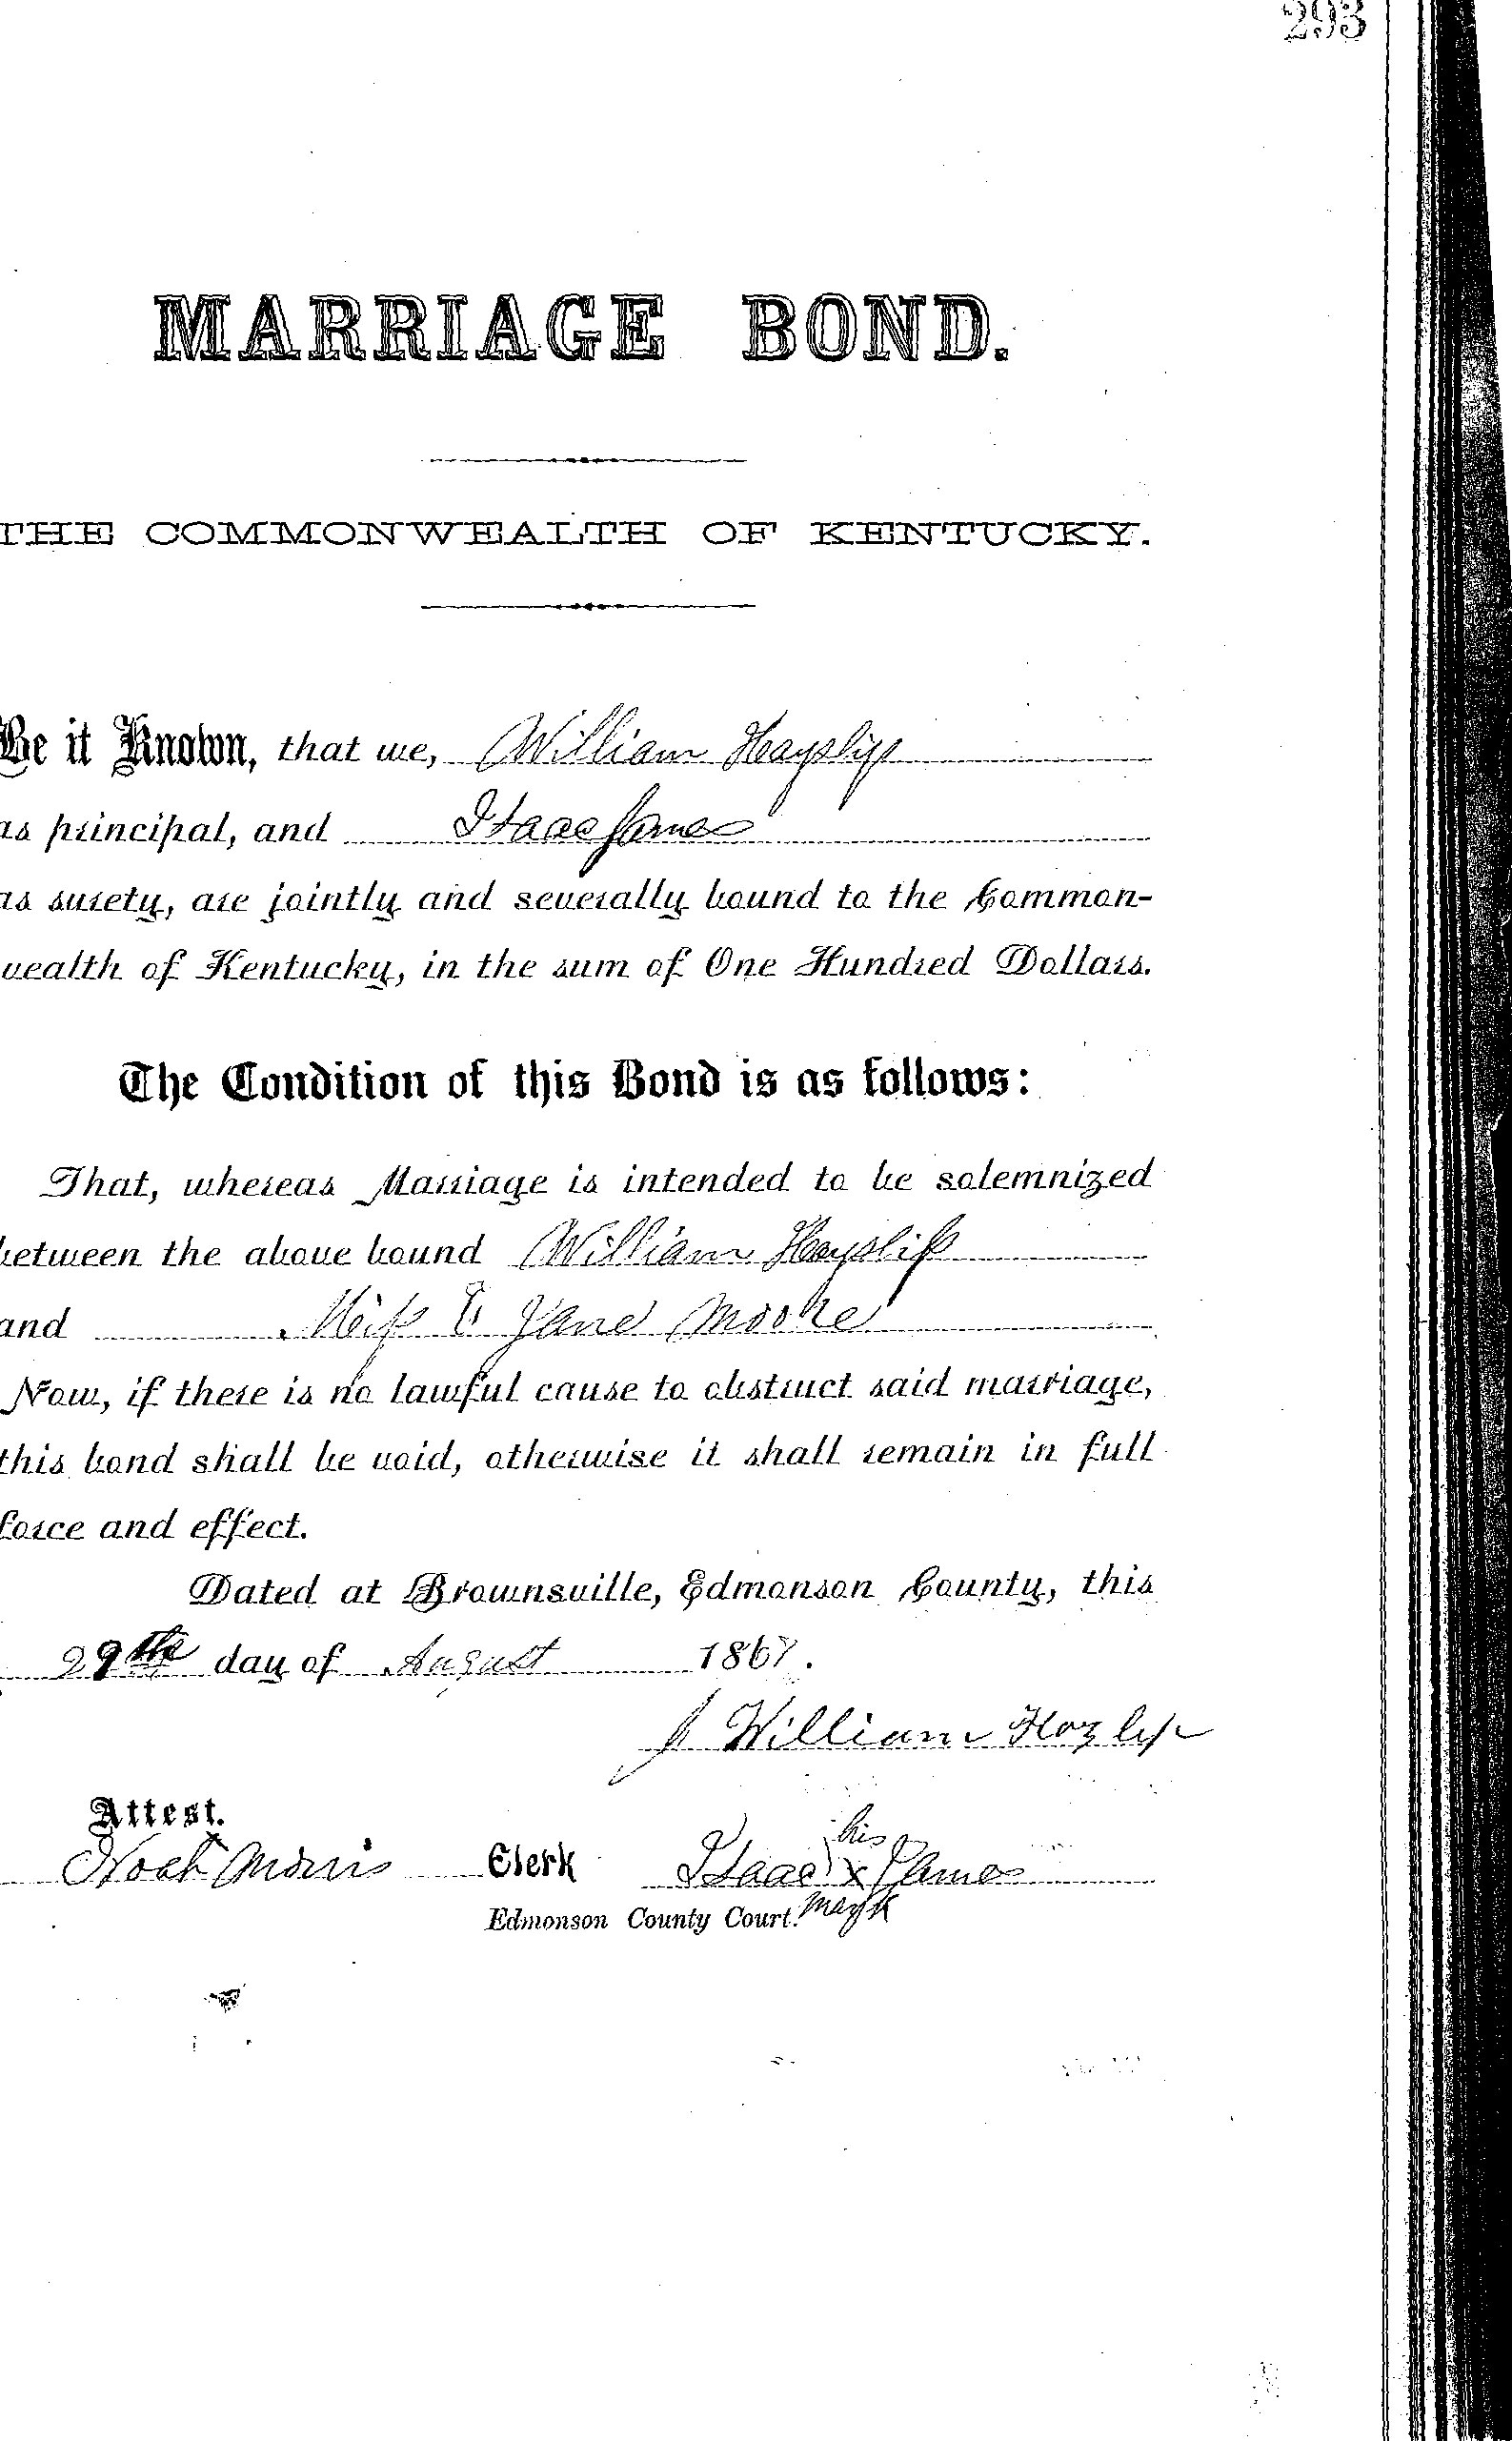 293
MARRIAGE BOND.
THE COMMONWEALTH OF KENTUCKY.
Be it Known, that we, William Hayslip
as principal, and Isaac James
as surety, are jointly and severally bound to the Common-
wealth of Kentucky, in the sum of One Hundred Dollars.
The Condition of this Bond is as follows:
That, whereas Marriage is intended to be solemnized
between the above bound William Hayslip
and Miss E Jane Moore
Now, if there is no lawful cause to obstruct said marriage,
this bond shall be void, otherwise it shall remain in full
force and effect.
Dated at Brownsville, Edmonson County, this
29th day of August 1867.
William Hazlip
Attest.
his
Noah Morris Clerk Isaac x James
Edmonson County Court. mark